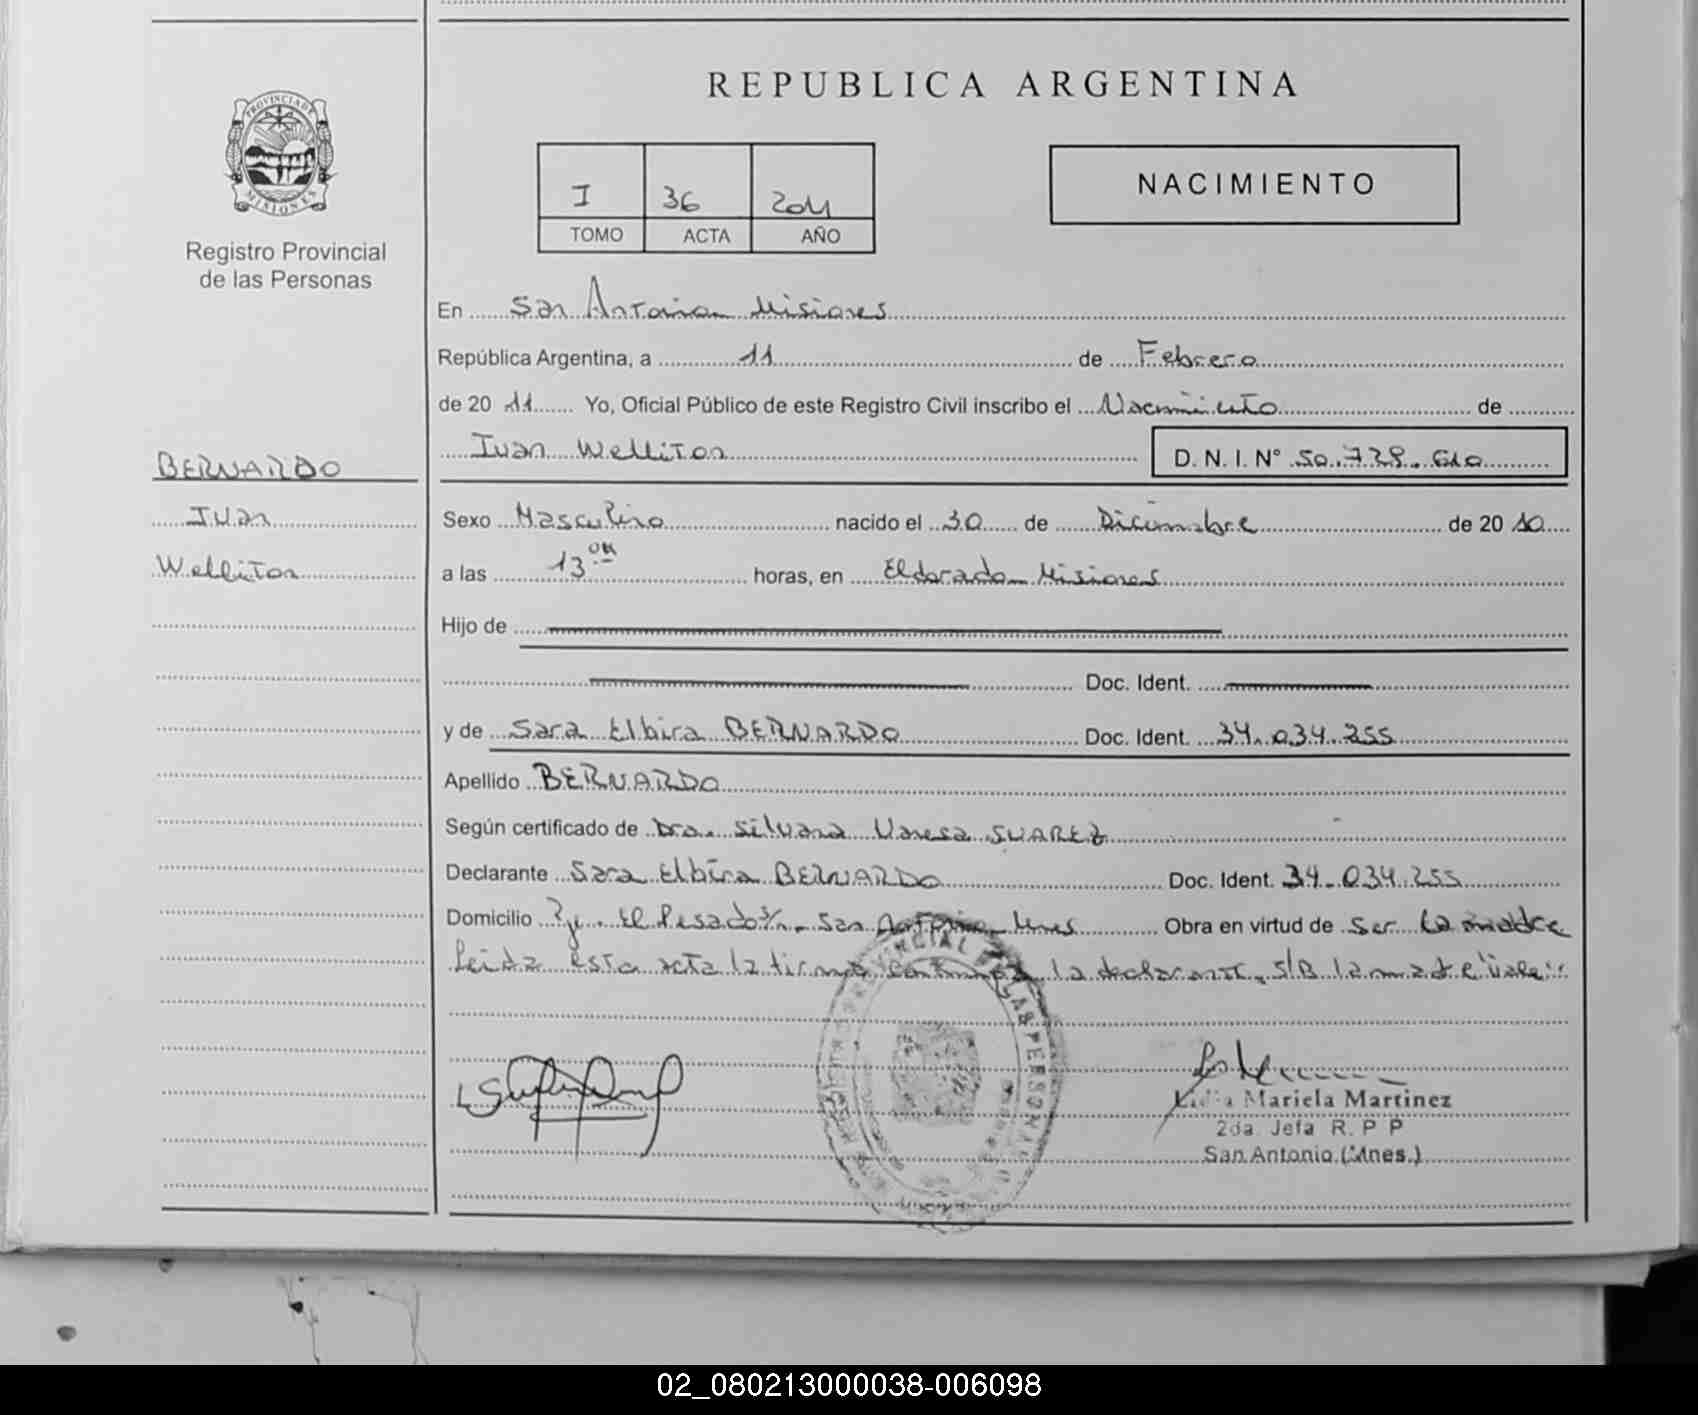 REPUBLICA ARGENTINA
PROVINCIA DE
MISIONES
Registro Provincial
de las Personas
I 36 2011
TOMO ACTA AÑO
NACIMIENTO
En San Antonio - Misiones
República Argentina, a 11 de Febrero
de 20 11 Yo, Oficial Público de este Registro Civil inscribo el Nacimiento de
Iuan Welliton D. N. I. N° 50.728.610
BERNARDO
Iuan
Welliton
Sexo Masculino nacido el 30 de Diciembre de 20 10
a las 13 horas, en Eldorado - Misiones
Hijo de
Doc. Ident.
y de Sara Elbira BERNARDO Doc. Ident. 34.034.255
Apellido BERNARDO
Según certificado de Dra. Silvana Vanesa SUAREZ
Declarante Sara Elbira BERNARDO Doc. Ident. 34.034.255
Domicilio El Pesado S/n. San Antonio - Mnes Obra en virtud de Ser la madre
Leida esta acta la firma conmigo la declarante. S/B la madre "Vale"
Lidia Mariela Martinez
2da. Jefa R. P P
San Antonio (Mnes.)
02_080213000038-006098